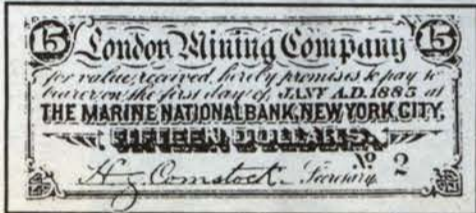 15 London Mining Company 15
for value received, hereby promises to pay to
bearer on the first day of JANY A.D. 1885 at
THE MARINE NATIONAL BANK, NEW YORK CITY,
FIFTEEN DOLLARS.
Nº 2
H. G. Comstock. Secretary